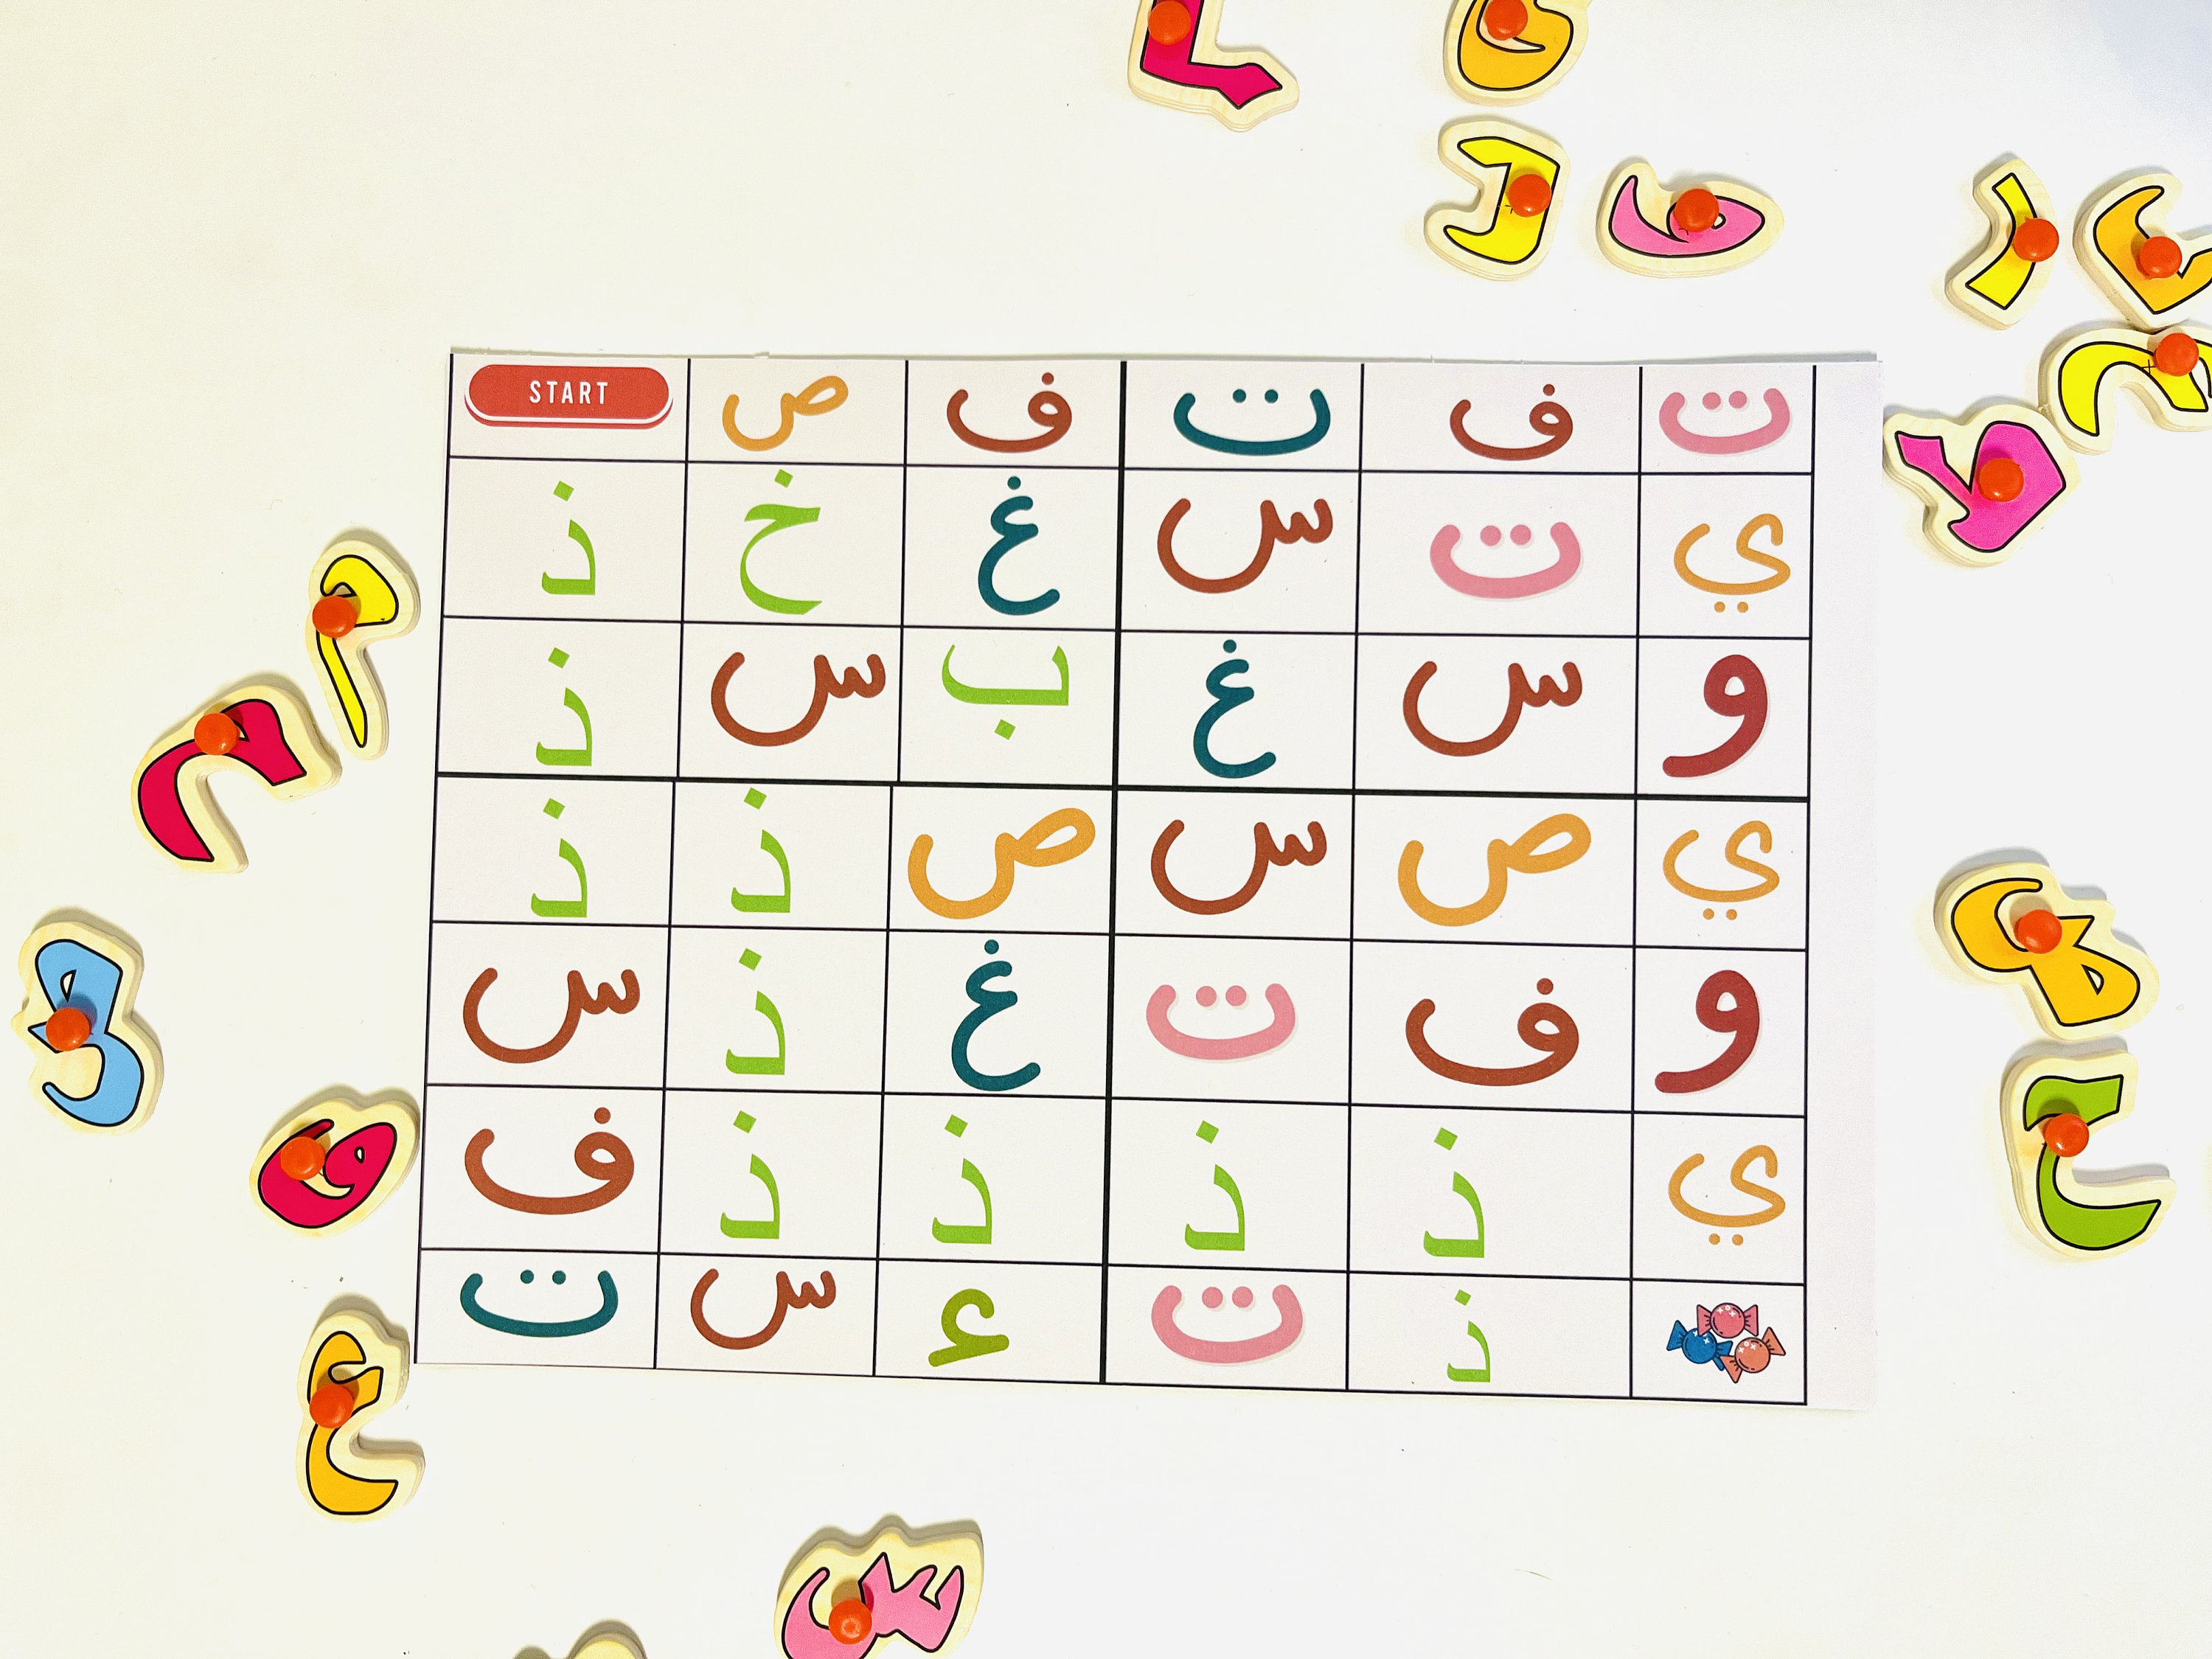 START ص ف ت ف ت
ذ خ غ س ت ي
ذ س ب غ س و
ذ ذ ص س ص ي
س ذ غ ت ف و
ف ذ ذ ذ ذ ي
ت س ء ت ذ